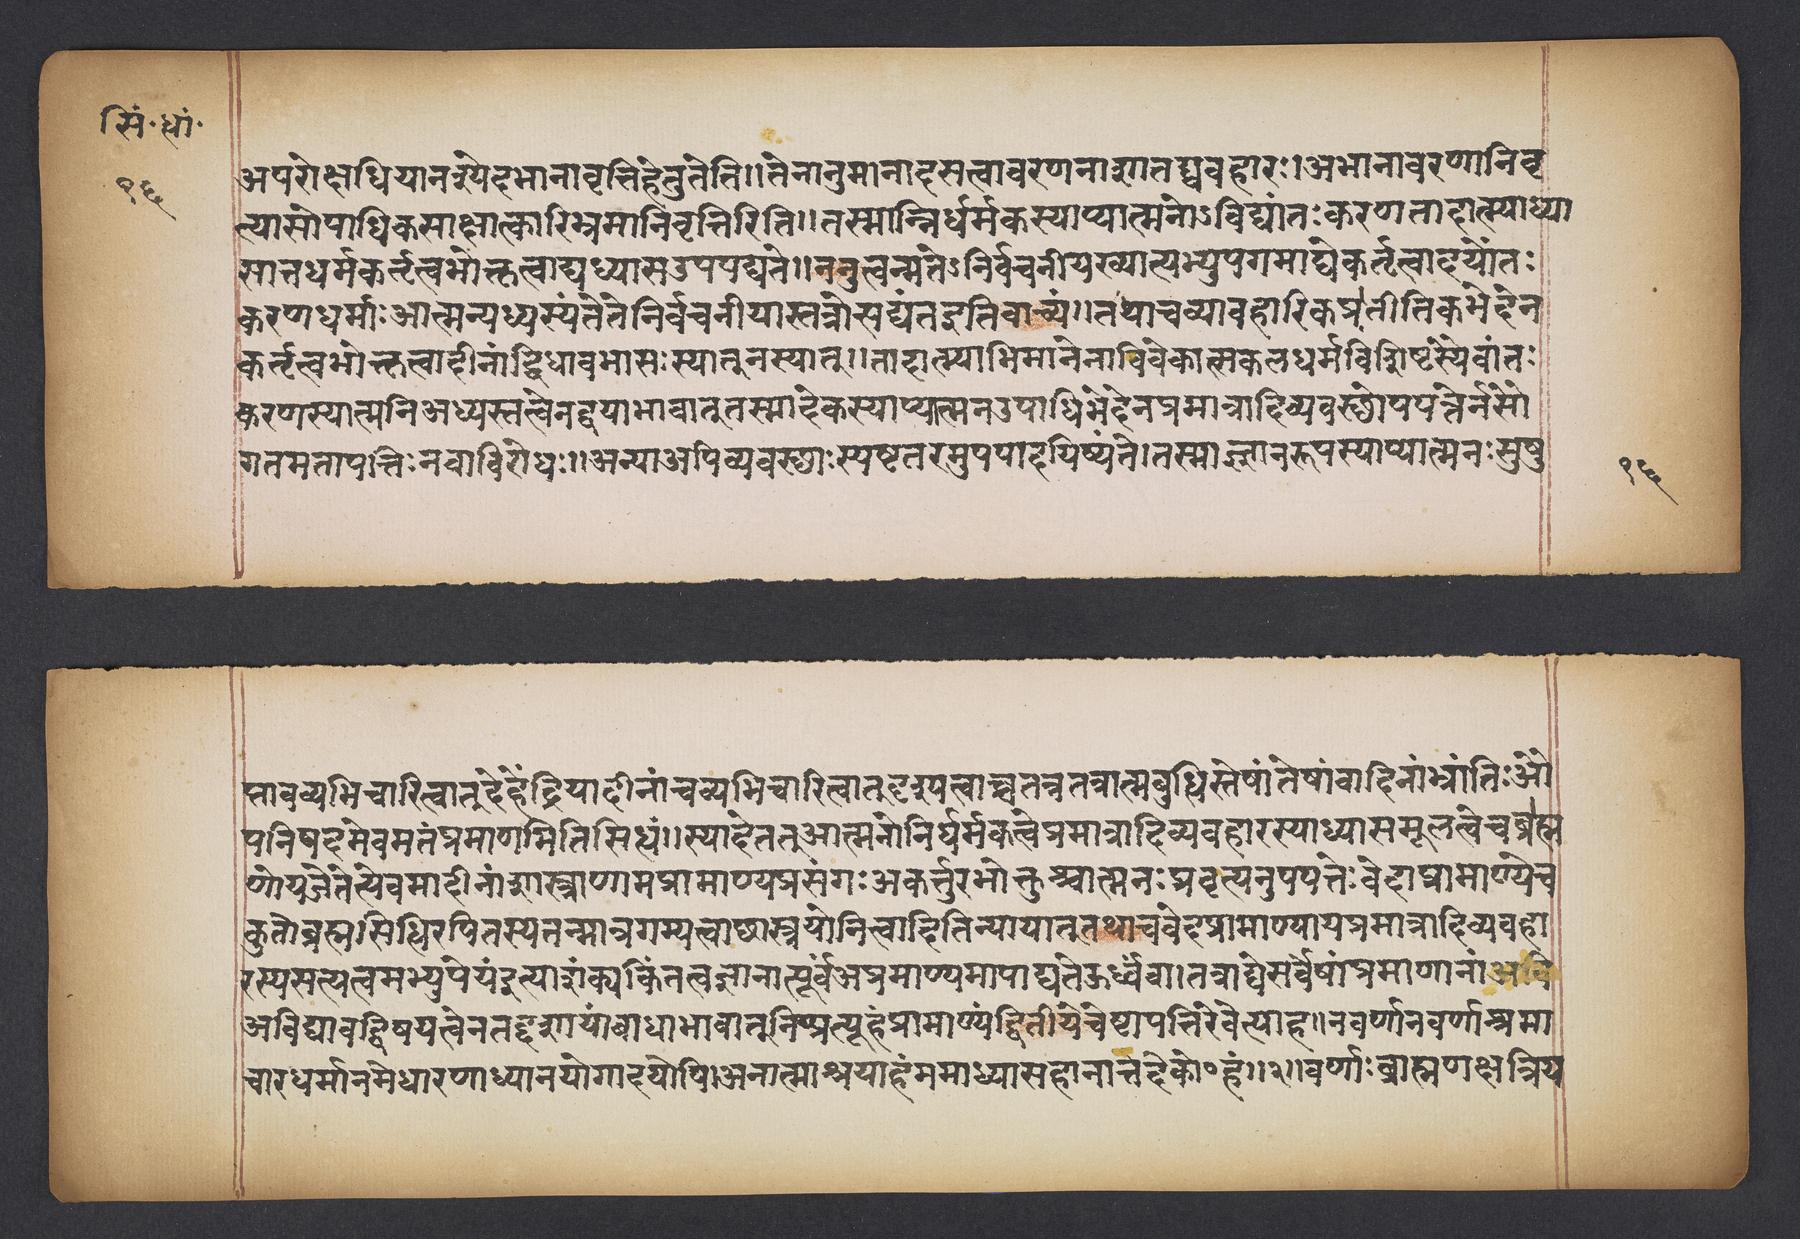 सिं॰धां॰
१६
अपरोक्षाधियानश्येदभानावृत्तिर्हेतुतेति॥तेनानुमानादसत्वावरणनाशातद्व्यवहारः।अभानावरणानिवृ
त्त्यासोपाधिकसाक्षात्कारिभ्रमानिवृत्तिरिति॥तस्मान्निर्धर्मकस्याप्यात्मनोऽविद्यांतःकरणतादात्म्याध्या
सात्तधर्मकर्तृत्वभोक्तृत्वाद्यध्यासउपपद्यते॥ननुत्वन्मतेऽनिर्वचनीयख्यात्यभ्युपगमाद्येकर्तृत्वादयोंतः
करणधर्माःआत्मन्यध्यस्यंतेतेनिर्वचनीयास्तत्रोत्पद्यंतइतिवाच्यं॥तथाचव्यावहारिकप्रातीतिकभेदेन
कर्तृत्वभोक्तृत्वादीनांद्विधावभासःस्यात्तुनस्यात्॥तादात्म्याभिमानेनाविवेकात्सकलधर्मविशिष्टस्येवांतः
करणस्यात्मनिअध्यस्तत्वेनद्वयाभावात्तस्मादेकस्याप्यात्मनउपाधिभेदेनप्रमात्रादिव्यवस्थोपपत्तेर्नसौ
गतमतापत्तिःनवाविरोधः॥अन्याअपिव्यवस्थाःस्पष्टतरमुपपादयिष्यंते।तस्माज्ज्ञानरूपस्याप्यात्मनःसुषु
१६
प्तावव्यभिचारित्वात्देहेंद्रियादीनांचव्यभिचारित्वात्दृश्यत्वाच्चतत्रतत्रात्मबुधिस्तेषांतेषांवादिनांभ्रांतिःऔ
पनिषदमेवमतंप्रमाणमितिसिधं॥स्यादेतत्आत्मनोनिर्धर्मकत्वेप्रमात्रादिव्यवहारस्याध्यासमूलत्वेचब्राह्म
णोयजेतेत्येवमादीनांशास्त्राणामप्रामाण्यप्रसंगःअकर्त्तुरभोक्तुश्चात्मनःप्रवृत्यनुपपत्तेःवेदाप्रामाण्येच
कुतोब्रह्मसिधिरपितस्यतन्मात्रगम्यत्वाछास्त्रयोनित्वादितिन्यायात्तथाचवेदप्रामाण्यायप्रमात्रादिव्यवहा
रस्यसत्यत्वमभ्युपेयंइत्याशंक्यकिंतत्वज्ञानात्पूर्वंअप्रमाण्यमापाद्यतेऊर्ध्वंवा।तत्राद्येसर्वेषांप्रमाणानांअपि
अविद्यावद्विषयत्वेनतद्दशायांबाधाभावात्निष्प्रत्यूहंप्रामाण्यंद्वितीयेचेष्टापत्तिरेवेत्याह॥नवर्णानवर्णाश्रमा
चारधर्मानमेधारणाध्यानयोगादयोपि।अनात्माश्रयाहंममाध्यासहानात्तदेको॰हं॥२॥वर्णाःब्राह्मणक्षत्रिय